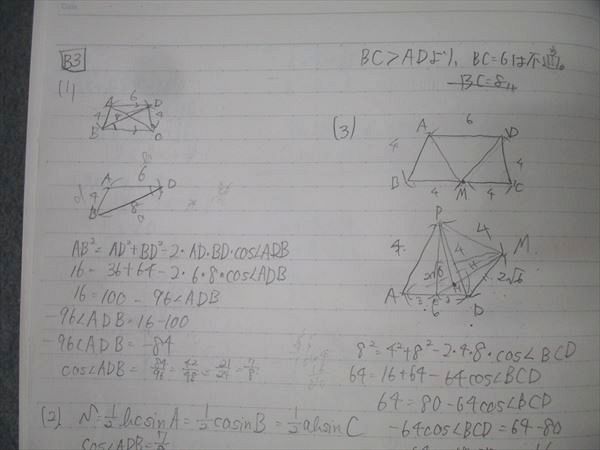 B3
(1)
A 6 D
4 4
B C
A 6 D
4
B 8
AB²=AD²+BD²-2·AD·BD·cos∠ADB
16 = 36+64-2·6·8·cos∠ADB
16=100-96∠ADB
-96∠ADB=16-100
-96∠ADB=-84
cos∠ADB=84/96=42/48=21/24=7/8
(2)
cos∠ADB=7/8
BC>ADより, BC=6は不適。
BC=8
(3)
A 6 D
4 4
B 4 M 4 C
P
4 4 4 M
2√6
A 3 E 3 D
6
8²=4²+8²-2·4·8·cos∠BCD
64=16+64-64cos∠BCD
64=80-64cos∠BCD
-64cos∠BCD=64-80